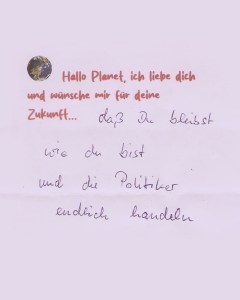 Hallo Planet, ich liebe dich
und wünsche mir für deine
Zukunft... daß Du bleibst
wie du bist
und die Politiker
endlich handeln